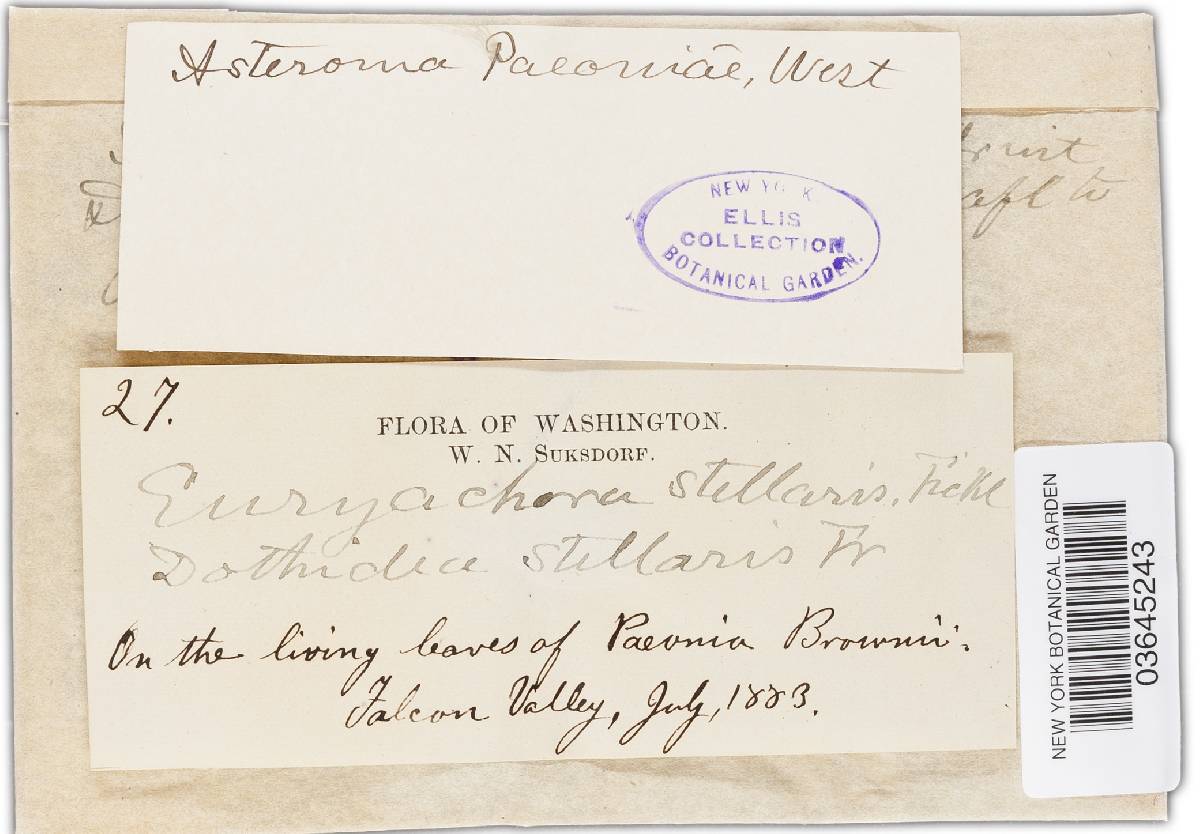 Asteroma Paeoniae, West
NEW YORK
ELLIS
COLLECTION
BOTANICAL GARDEN.
27.
FLORA OF WASHINGTON.
W. N. SUKSDORF.
Euryachora stellaris. Fckl
Dothidea stellaris Fr
On the living leaves of Paeonia Brownii:
Falcon Valley, July, 1883.
NEW YORK BOTANICAL GARDEN
03645243